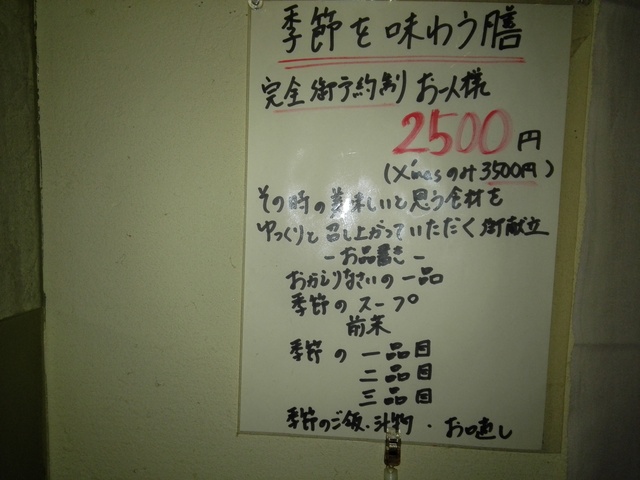 季節を味わう膳
完全御予約制 お一人様
2500円
(X'masのみ3500円)
その時の美味しいと思う食材を
ゆっくりと召し上がっていただく御献立
-お品書き-
おかえりなさいの一品
季節のスープ
前菜
季節の一品目
二品目
三品目
季節のご飯・汁物・お口直し